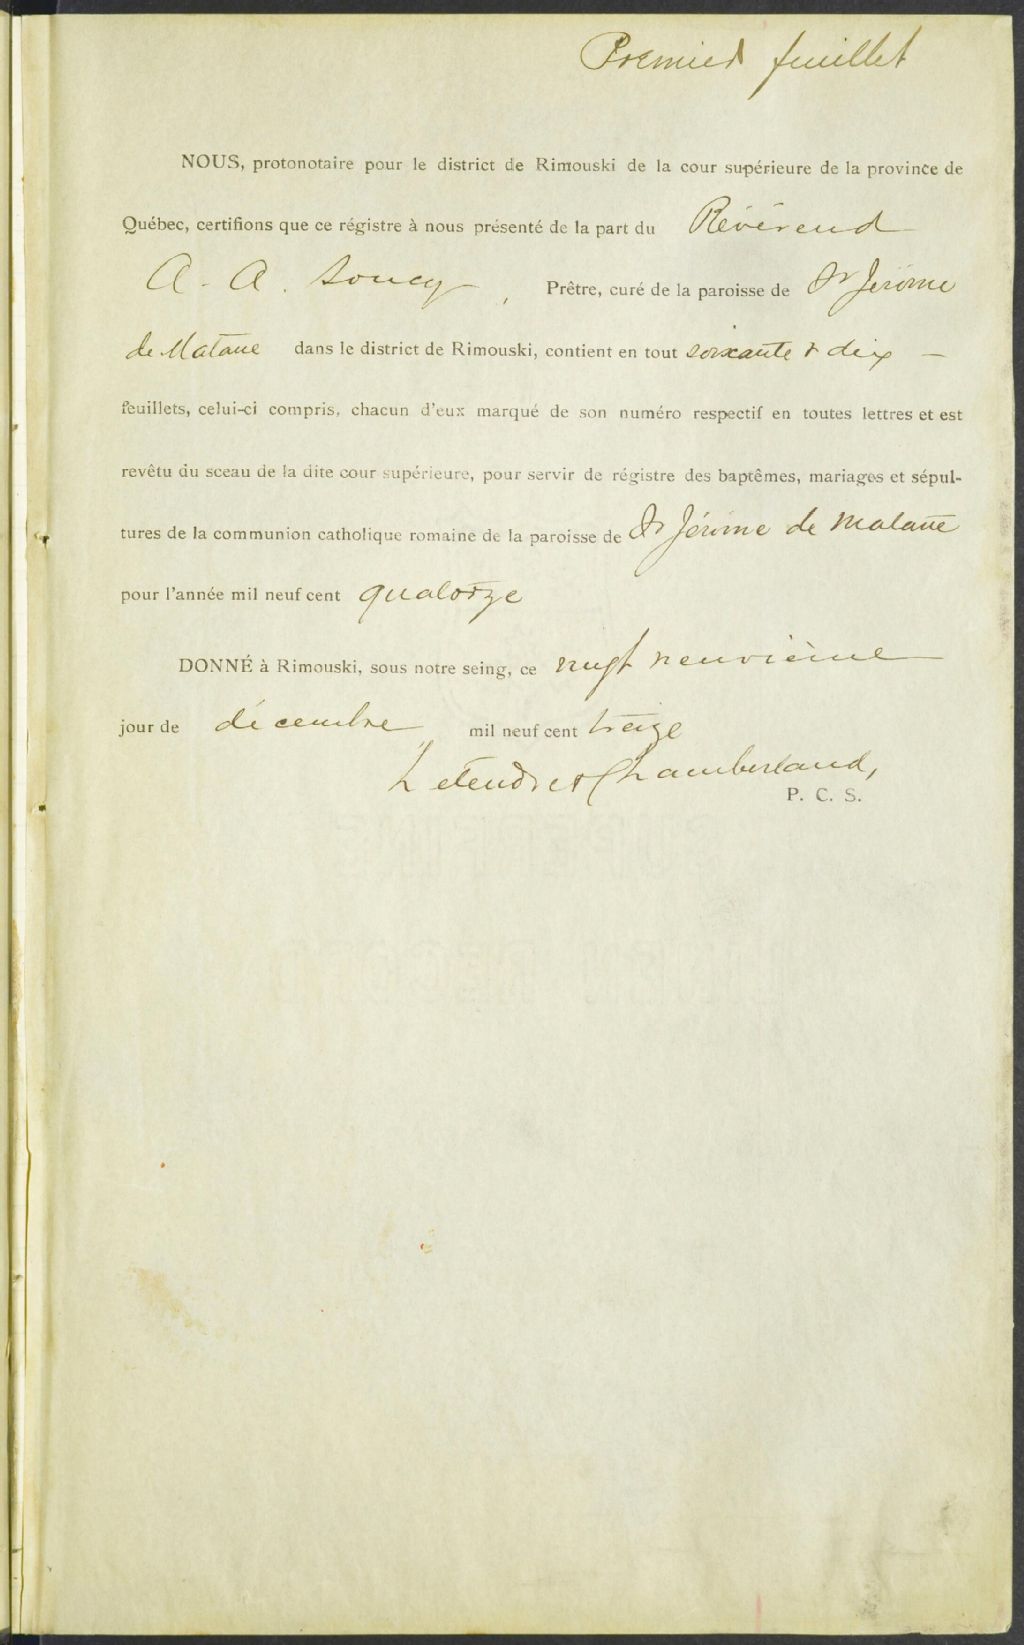 Premier feuillet
NOUS, protonotaire pour le district de Rimouski de la cour supérieure de la province de
Québec, certifions que ce régistre à nous présenté de la part du Révérend
A. A. Soucy, Prêtre, curé de la paroisse de St Jérôme
de Matane dans le district de Rimouski, contient en tout soixante & dix —
feuillets, celui-ci compris, chacun d'eux marqué de son numéro respectif en toutes lettres et est
revêtu du sceau de la dite cour supérieure, pour servir de régistre des baptêmes, mariages et sépul-
tures de la communion catholique romaine de la paroisse de St Jérôme de Matane
pour l'année mil neuf cent quatorze
DONNÉ à Rimouski, sous notre seing, ce vingt neuvième
jour de décembre mil neuf cent treize
Letendre & Chamberland,
P. C. S.